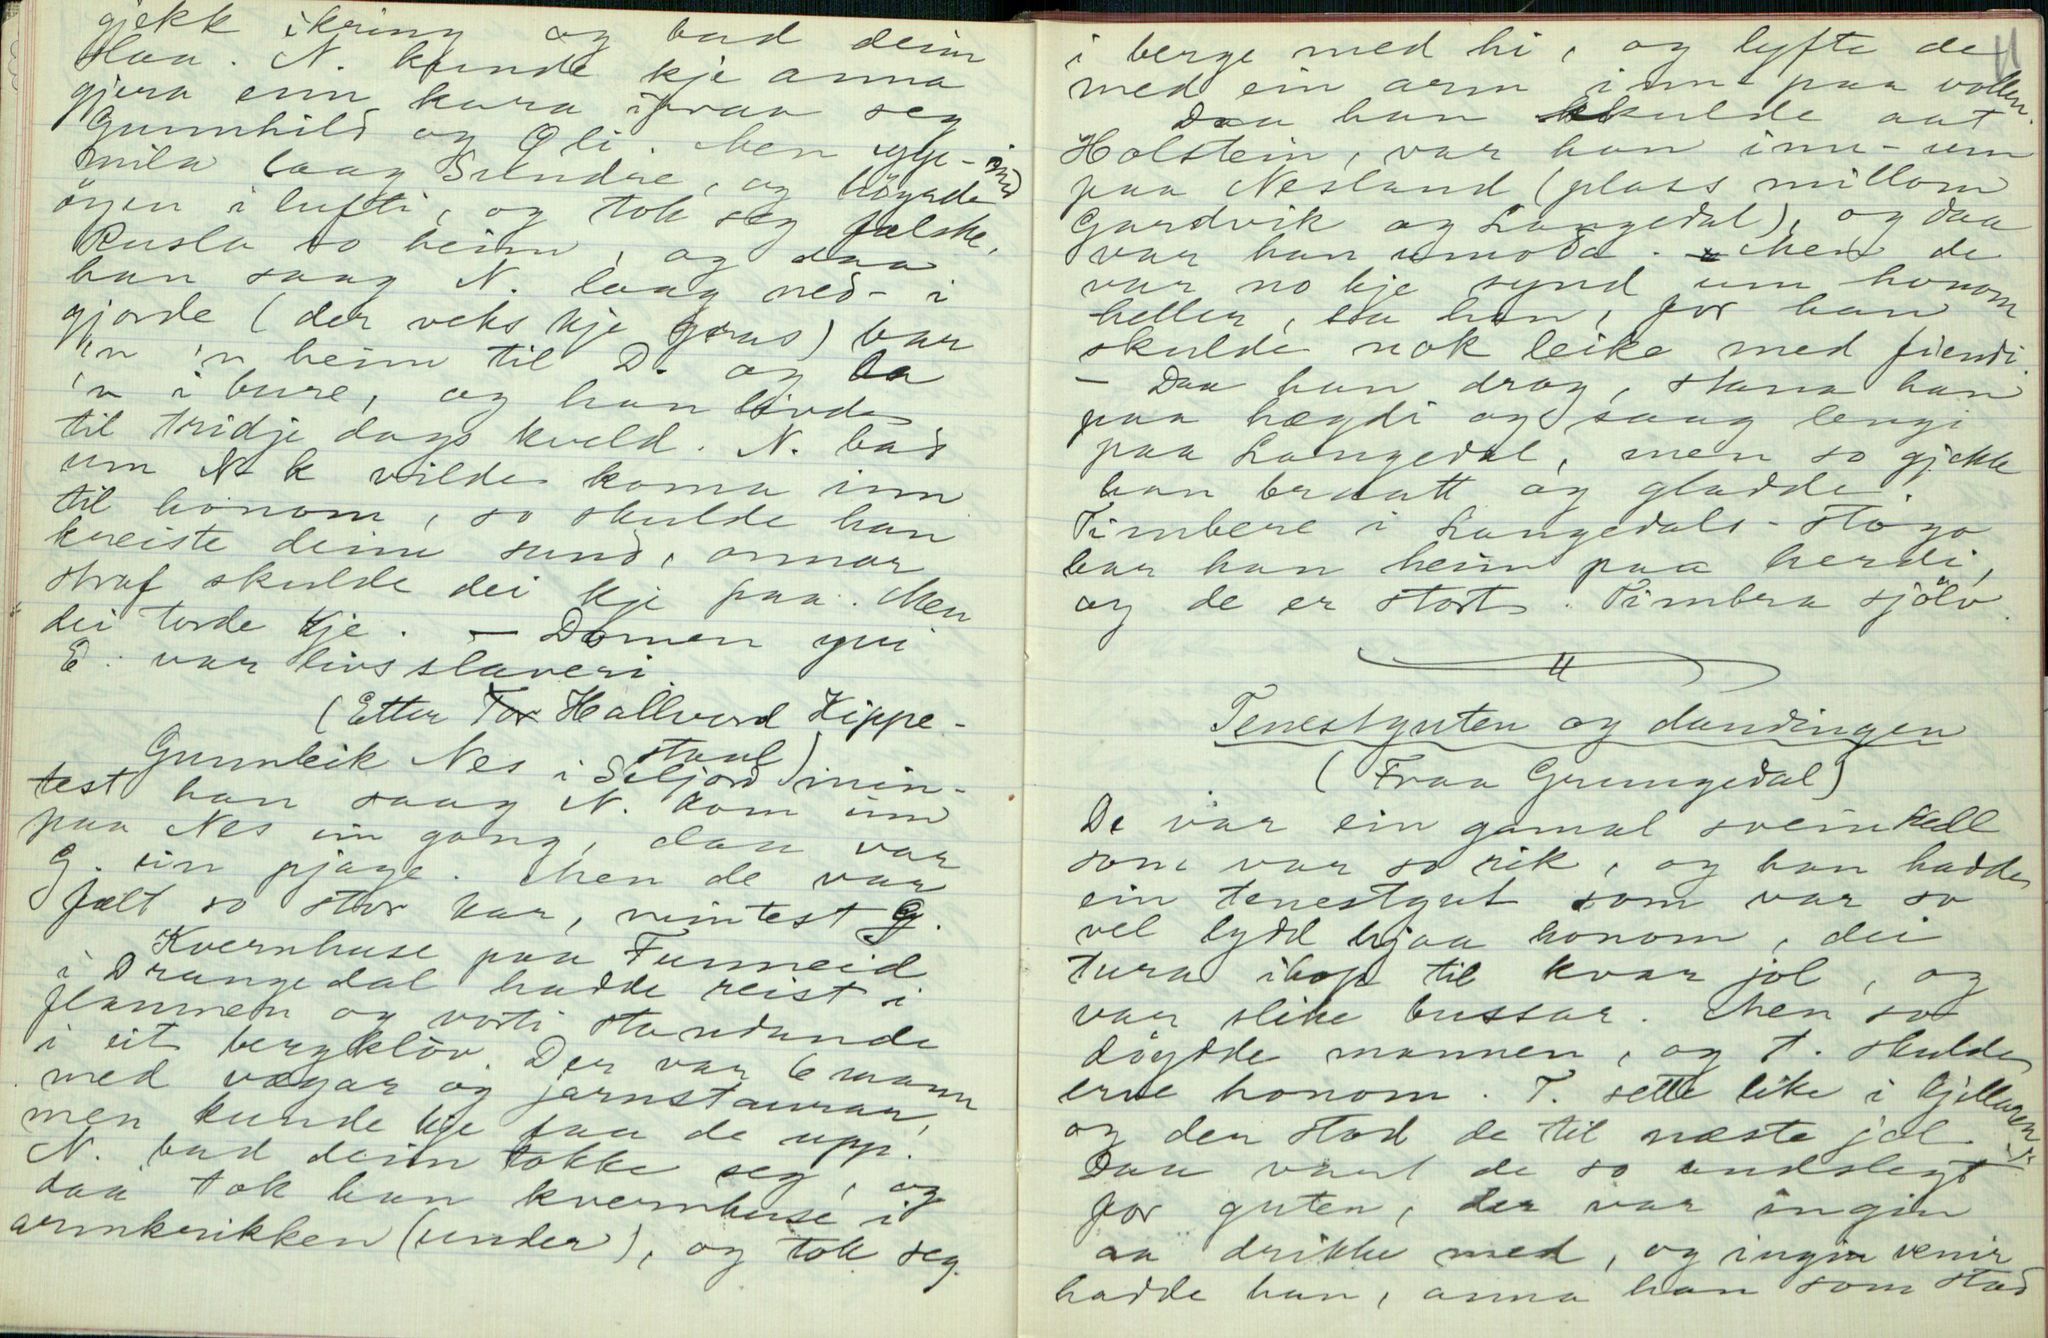 gjekk ikring og bad deim
slaa. N. kunde kje anna
gjera enn kara ifraa seg
Gunnhild og Oli. Men
mila laag Sundre, og högrde med
öyen i lufti, og tok seg felske,
Rusla so heim, og daa
han saag N. laag ned- i
gjorde (der veks kje gras) bar
'n 'n heim til D. og la
'n i bure, og han livde
til tridje dags kveld. N. bad
um N K vilde koma inn
til honom, so skulde han
kreiste deim sund, annar
straf skulde dei kje faa. Men
dei torde kje. — Domen yvi
E. var livsslaveri
(Etter Tor Hallvord Kippe-
staul)
Gunnleik Nes i Seljord min-
test han saag N. kom inn
paa Nes ein gong, daa var
G. ein pjage. Men de var
fælt so stor kar, mintest G.
Kvernhuse paa Funneid
i Drangedal hadde reist i
flaumen og vorti standande
i eit bergklöv. Der var 6 mann
med vægar og jarnstaurar,
men kunde kje faa de upp.
N. bad deim tokke seg, og
daa tok han kvernhuse i
armkrikken (under), og tok seg
11
i berge med hi, og lyfte de
med ein arm inn paa vollen.
Daa han skulde aat
Holstein, var han inn-um
paa Nesland (plass millom
Gardvik og Langedal), og daa
var han umoda. Men de
var no kje synd um honom
heller, sa han, for han
skulde nok leike med fiendi
— Daa han drog, stana han
paa hægdi og saag lengi
paa Langedal, men so gjekk
han braatt og gladde.
Timbere i Langedals-stogo
bar han heim paa herdi,
og de er stort. Timbra sjölv.
Tenestguten og daudingen
(Fraa Grungedal)
De var ein gamal sveinkall
som var so rik, og han hadde
ein tenestgut som var so
vel lydd hjaa honom, dei
tura ihop til kvar jol, og
var slike bussar. Men so
döydde mannen, og T. skulde
erve honom. T. sette like i kjellaren
og der stod de til næste jol.
Daa vart de so audslegt
for guten, der var ingin
aa drikke med, og ingin venir
hadde han, anna han som stod